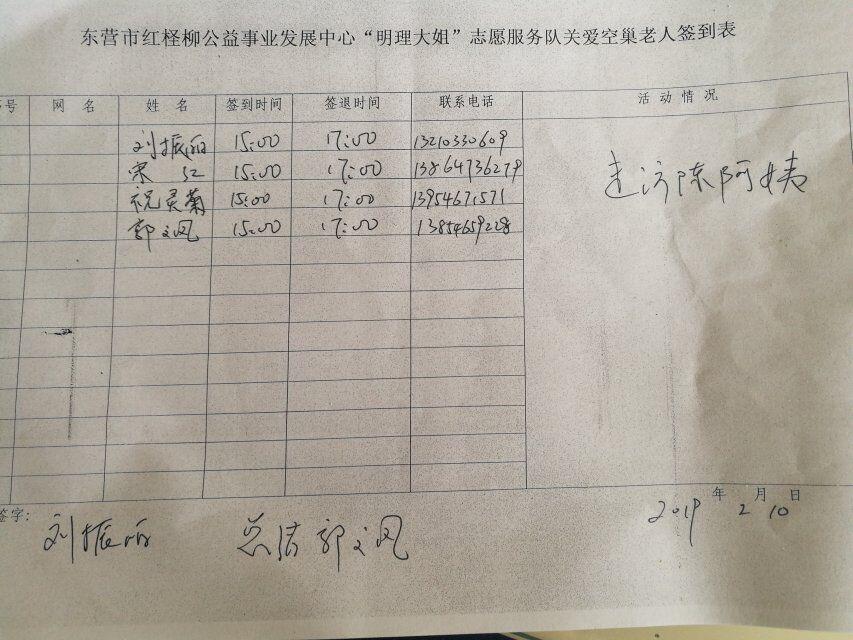 东营市红柽柳公益事业发展中心“明理大姐”志愿服务队关爱空巢老人签到表
号 网 名 姓 名 签到时间 签退时间 联系电话 活 动 情 况
刘振丽 15:00 17:00 13210330609
宋 红 15:00 17:00 13864736279 走访陈阿姨
祝灵菊 15:00 17:00 13954671571
郭文凤 15:00 17:00 13854659228
年 月 日
签字: 刘振丽 总结 郭文凤 2019 2 10